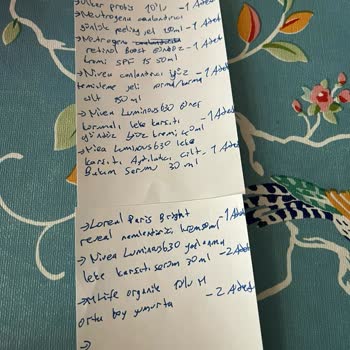 →Neutrogena canlandırıcı - 1 Adet
günlük peeling jel 150ml
→Neutrogena
retinol Boost Gündüz - 1 Adet
kremi SPF 15 50ml
→Nivea canlandırıcı yüz - 1 Adet
temizleme jeli normal/karma
cilt 150 ml
→Nivea Luminous630 Güneş
korumalı leke karşıtı - 1 Adet
gündüz yüz kremi 40ml
→Nivea Luminous630 leke
karşıtı Aydınlatıcı cilt - 1 Adet
Bakım Serum 30 ml
→Loreal Paris Bright - 1 Adet
reveal nemlendirici krem 50ml
→Nivea Luminous630 yaşlanma
leke karşıtı serum 30 ml - 2 Adet
→Mlife organik 10'lu M
orta boy yumurta - 2 Adet
→